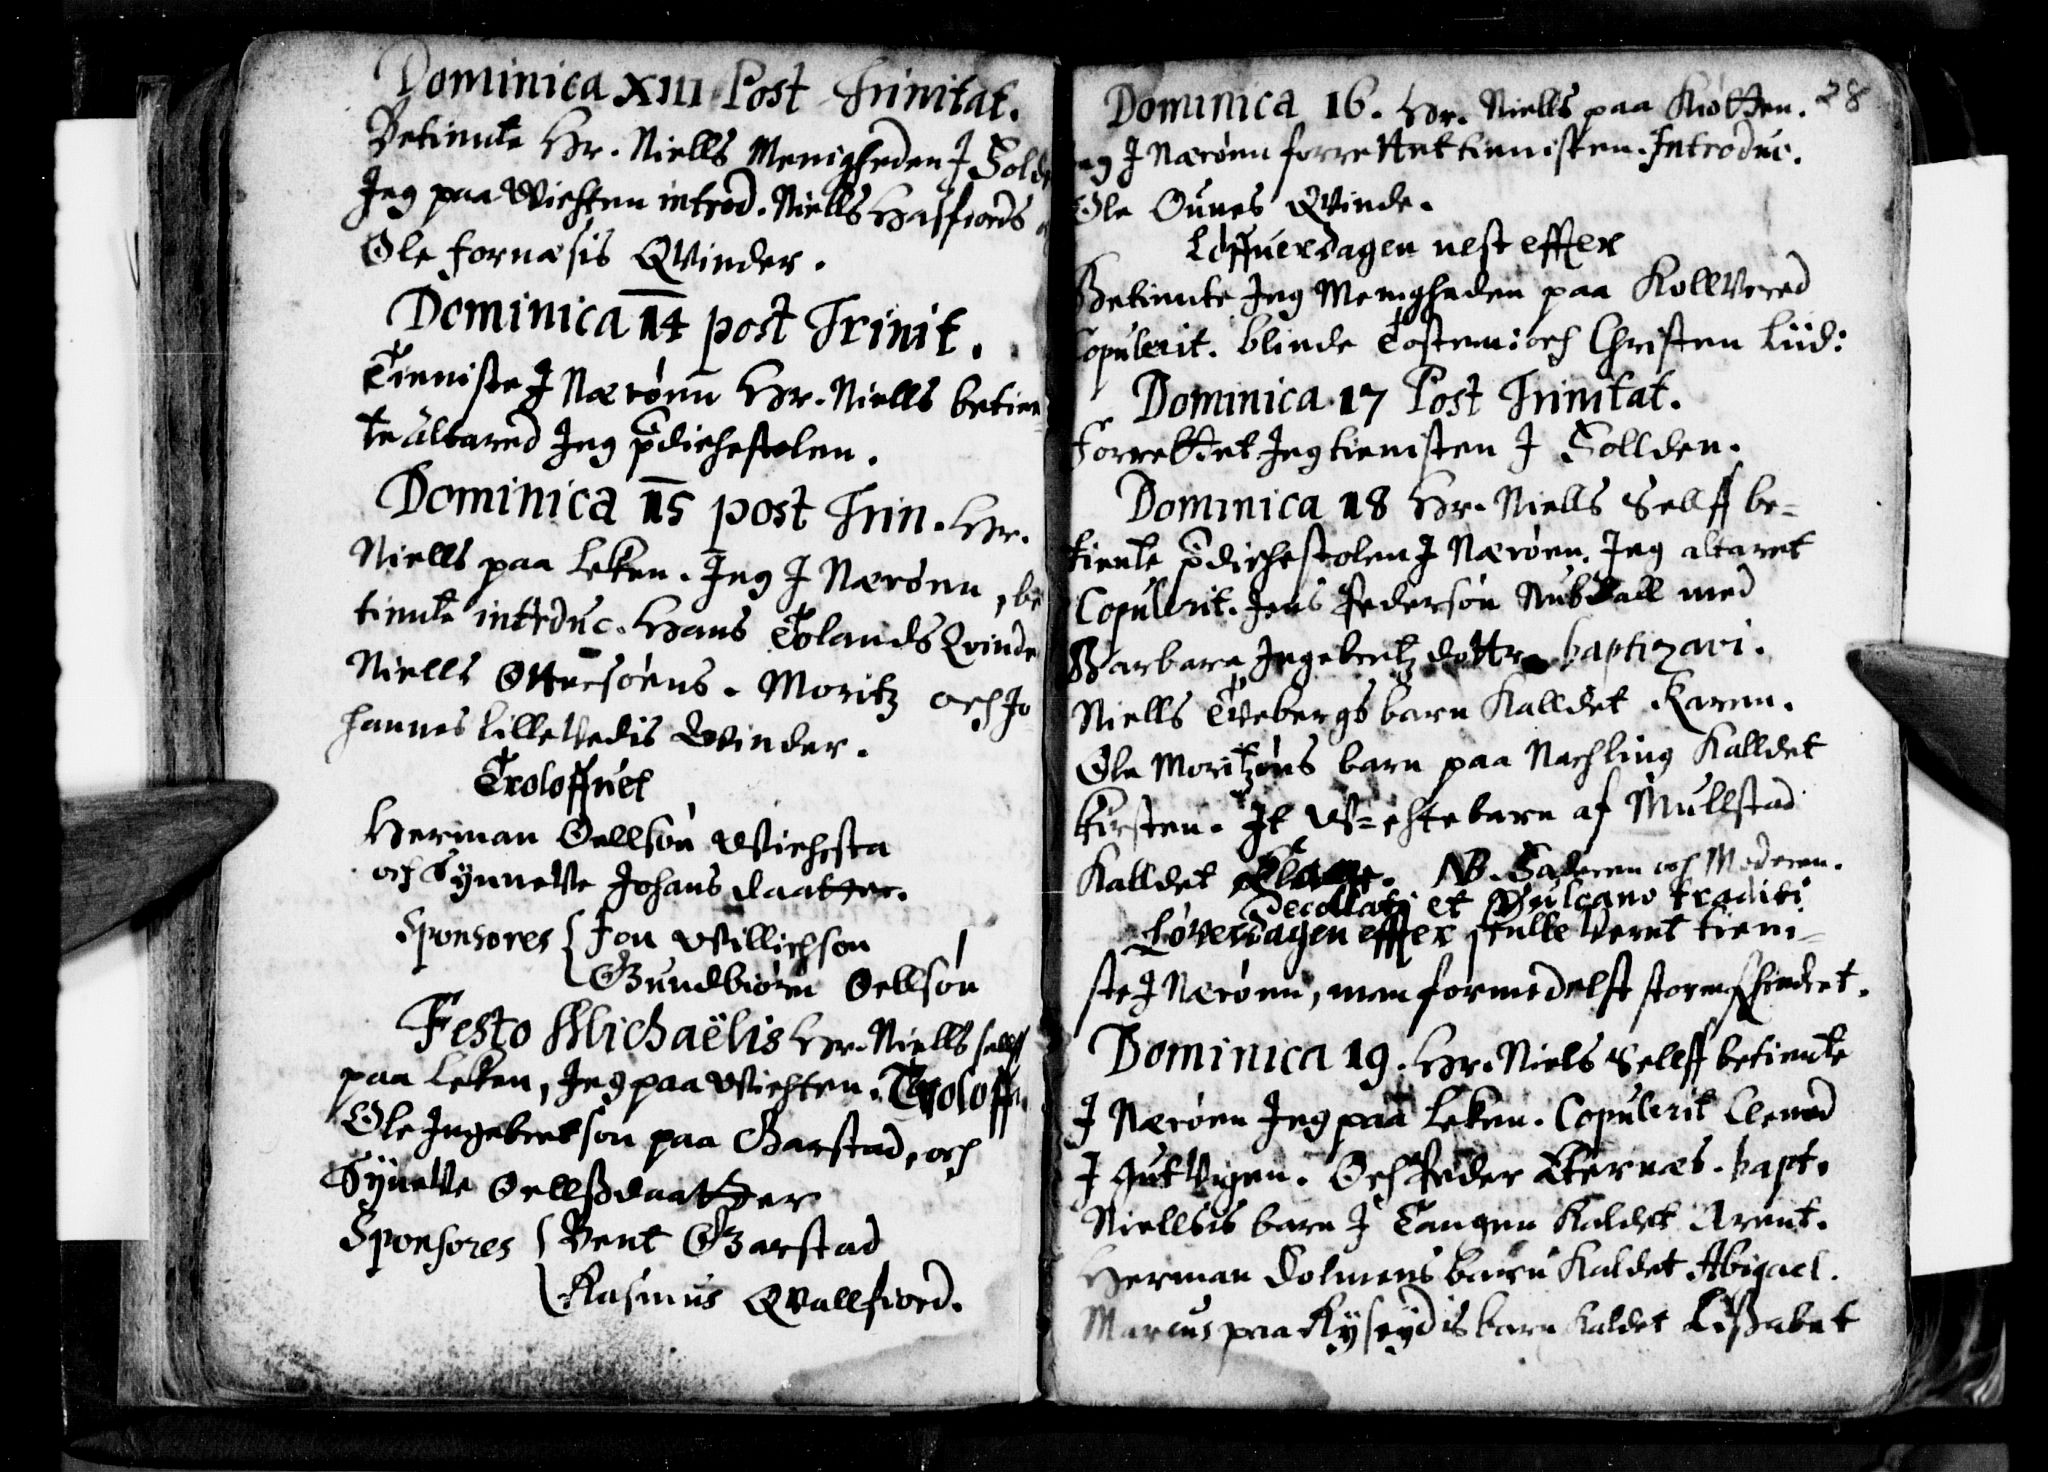 Dominica XIII Post Trinitat.
Betiente Hr. Niells Menigheden J Folde
Jeg paa Wichten introd. Niells Hasfiords
Ole Fornæsis Qvinder.
Dominica 14 post Trinit.
Tieniste J Nærøenn Hr. Niells betien
te altared Jeg predichestolen.
Dominica 15 post Trin. Hr.
Niells paa Leken. Jeg J Nærøenn, be
tiente introduc. Hans Tolands Qvinde
Niells Ottersøens. Moritz och Jo
hannes Lillevedis Qvinder.
Troloffuet
Herman Oellsøn Wichsta
och Synneve Johans daatter.
Sponsores { Jon Willichsøn
Gundbiørn Oellsøn
Festo Michaëlis Hr. Niells sellff
paa Leken, Jeg paa Wichten. Troloff.
Ole Jngebretsøn paa Garstad, och
Sÿneve Oellsdaatter
Sponsores { Bent Garstad
Rasmus Qvallfiord.
28
Dominica 16. Hr. Niells paa Kiøtten.
Jeg J Nærøenn forrettet tienisten. Introduc.
Ole Ounes Qvinde.
Løffuerdagen nest effter
Betiente Jeg Menigheden paa Kollvered
Copulerit. blinde Tosten: och Christen Liid:
Dominica 17 Post Trinitat.
Forrettet Jeg tienisten J Follden.
Dominica 18 Hr. Niells Sellff be=
tiente predichestolen J Nærøen. Jeg altaret
Copulerit. Jens Pedersøn Nubdall med
Barbara Jngebretz dotter baptizavi.
Niells Tvebergs barn Kalldet Karen.
Ole Moritzøns barn paa Nachling Kalldet
Kirsten. Jt W=echte barn af Mullstad
Kalldet NB. Faderen och Moderen.
Decollati et Vulcano traditi
Løverdagen effter skulle Veret tieni=
ste J Nærøenn, men formedelst storm forhindret.
Dominica 19. Hr. Niels Sellff betiente
J Nærøen Jeg paa Leken. Copulerit Clemed
J Gutvigen. Och Peder Akernæs. bapt.
Niellsis barn J Tangen Kaldet Arent.
Herman Dolmens barn Kaldet Abigael.
Marcus paa Rÿseÿdis barn Kaldet Lissabet